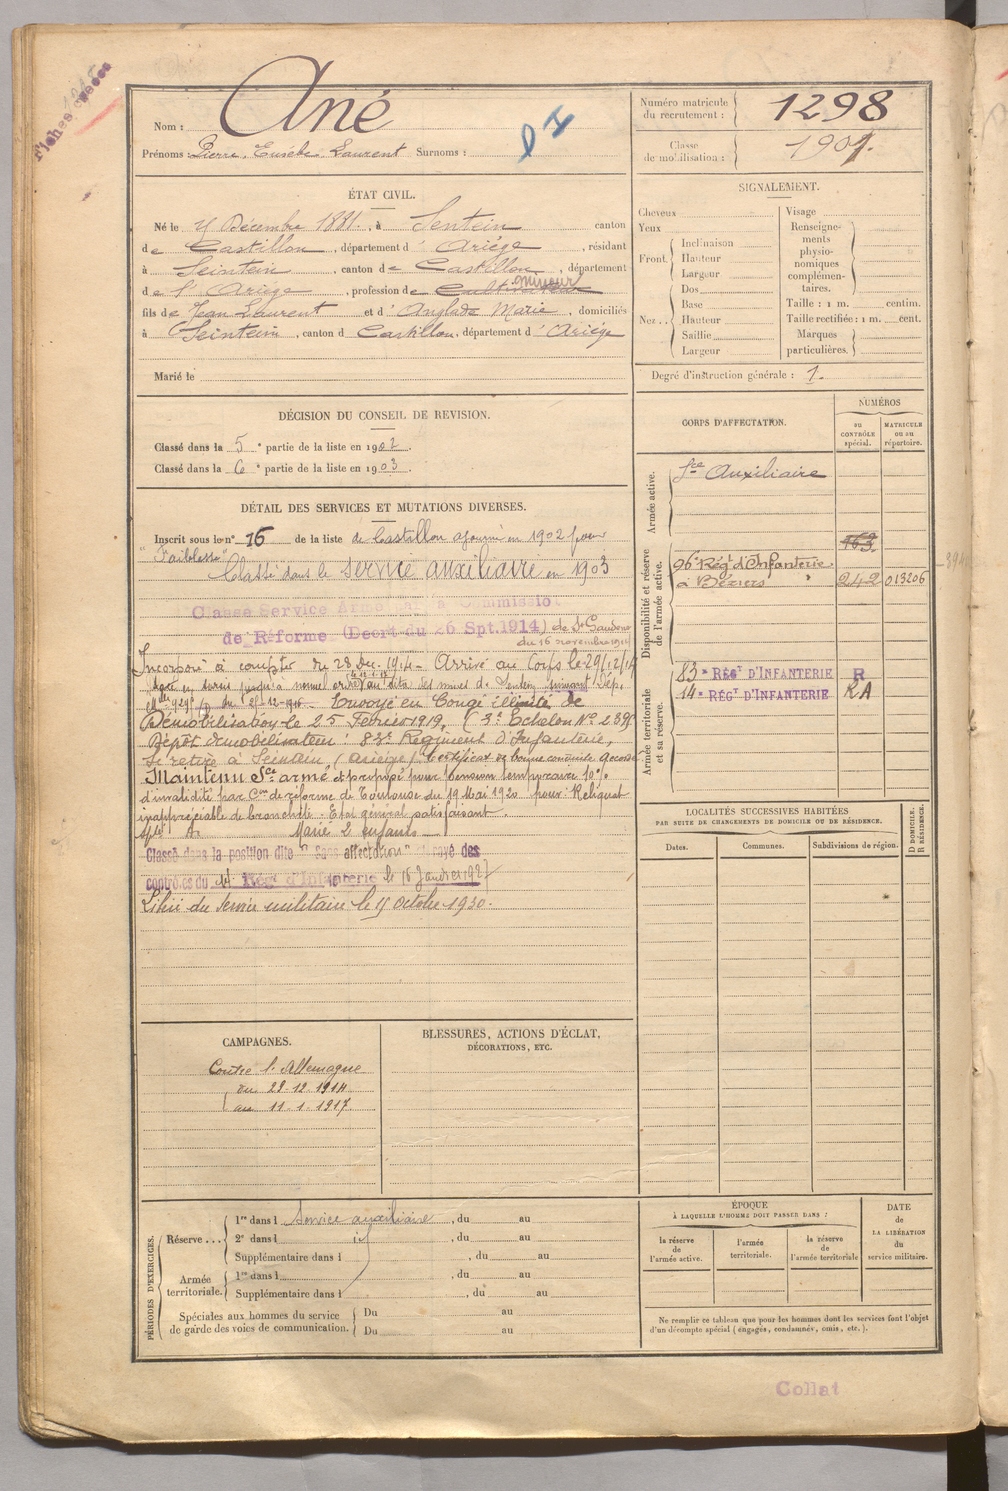 Fiches
Nom : Ané
Prénoms : Pierre, Eusèbe Laurent Surnoms :
Numéro matricule du recrutement : 1298
Classe de mobilisation : 1901.
ÉTAT CIVIL.
Né le Décembre 1881, à Sentein canton
de Castillon, département d' Ariège, résidant
à Seintein, canton de Castillon, département
mineur
de l' Ariège, profession de Cultivateur
fils de Jean Laurent et d' Anglade Marie, domiciliés
à Seintein, canton d Castillon, département d' Ariège
Marié le
SIGNALEMENT.
Cheveux
Yeux
Front. Inclinaison
Hauteur
Largeur
Nez.. Dos
Base
Hauteur
Saillie
Largeur
Visage
Renseignements physionomiques complémentaires.
Taille : 1 m. centim.
Taille rectifiée : 1 m. cent.
Marques particulières.
Degré d'instruction générale : 1.
DÉCISION DU CONSEIL DE REVISION.
Classé dans la 5e partie de la liste en 1902.
Classé dans la 6e partie de la liste en 1903.
CORPS D'AFFECTATION.
NUMÉROS
au CONTRÔLE spécial.
MATRICULE ou au répertoire.
Armée active.
Sce Auxiliaire
Disponibilité et réserve de l'armée active.
163.
96e Régt d'Infanterie
à Béziers 242 013206
Armée territoriale et sa réserve.
83e RÉGT D'INFANTERIE R
14e RÉGT D'INFANTERIE RA
DÉTAIL DES SERVICES ET MUTATIONS DIVERSES.
Inscrit sous le n° 16 de la liste de Castillon ajourné en 1902 pour
"Faiblesse"
Classé dans le service auxiliaire en 1903
Classé Service Armé par la Commission
de Réforme (Décrt du 26 Spt. 1914) de St Gaudens
du 16 novembre 1914
Incorporé à compter du 28 Déc. 1914 - Arrivé au Corps le 29/12/14
sursis jusqu'à nouvel ordre au des mines de Sentein suivant Dép.
Envoyé en Congé illimité de
Démobilisation le 25 Février 1919, (3e Echelon N° 239)
Dépôt démobilisateur : 83e Régiment d'Infanterie,
Se retire à Seintein, (Ariège) Certificat de bonne conduite accordé
Maintenu Sce armé et proposé pour Pension temporaire 10%
d'invalidité par Con de réforme de Toulouse du 19 Mai 1920 pour : Reliquat
inappréciable de bronchite. Etat général satisfaisant.
Marié 2 enfants
Classé dans la position dite "Sans affectation" et rayé des
contrôles du 14 Régt d'Infanterie le 16 Janvier 1927
Libéré du service militaire le octobre 1930.
LOCALITÉS SUCCESSIVES HABITÉES
PAR SUITE DE CHANGEMENTS DE DOMICILE OU DE RÉSIDENCE.
Dates. Communes. Subdivisions de région.
D DOMICILE. R RÉSIDENCE.
CAMPAGNES.
Contre l'Allemagne
du 28.12.1914
au 11.1.1917
BLESSURES, ACTIONS D'ÉCLAT,
DÉCORATIONS, ETC.
PÉRIODES D'EXERCICES.
Réserve ...
1re dans l Service auxiliaire, du au
2e dans l , du au
Supplémentaire dans l , du au
Armée territoriale.
1re dans l , du au
Supplémentaire dans l , du au
Spéciales aux hommes du service de garde des voies de communication.
Du au
Du au
ÉPOQUE
À LAQUELLE L'HOMME DOIT PASSER DANS :
la réserve de l'armée active.
l'armée territoriale.
la réserve de l'armée territoriale
DATE de LA LIBÉRATION du service militaire.
Ne remplir ce tableau que pour les hommes dont les services font l'objet
d'un décompte spécial (engagés, condamnés, omis, etc.).
Collat